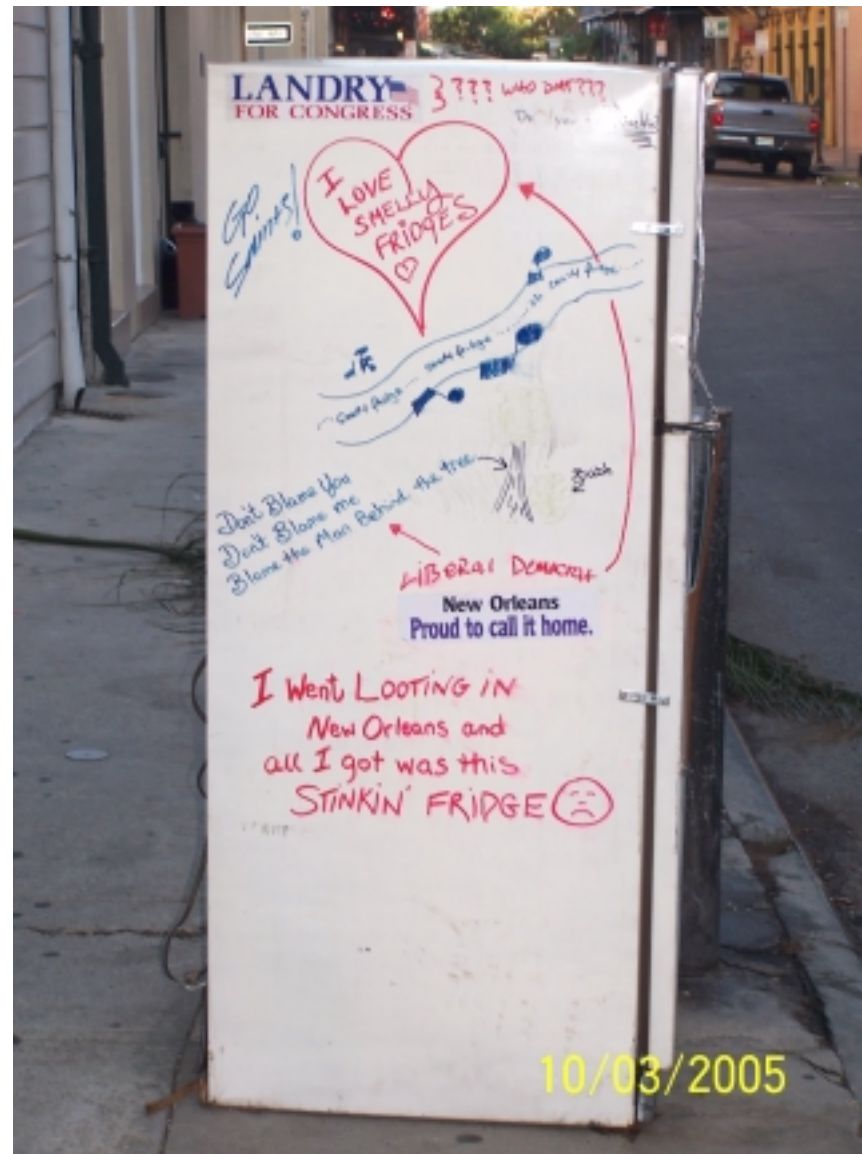 LANDRY
FOR CONGRESS
} ??? WHO DAT???
GO
SAINTS!
I
LOVE
SMELLY
FRIDGES
Don't Blame You
Don't Blame me
Blame the Man Behind the tree
Bush
LIBERAL DEMOCRAT
New Orleans
Proud to call it home.
I Went LOOTING IN
New Orleans and
all I got was this
STINKIN' FRIDGE
10/03/2005